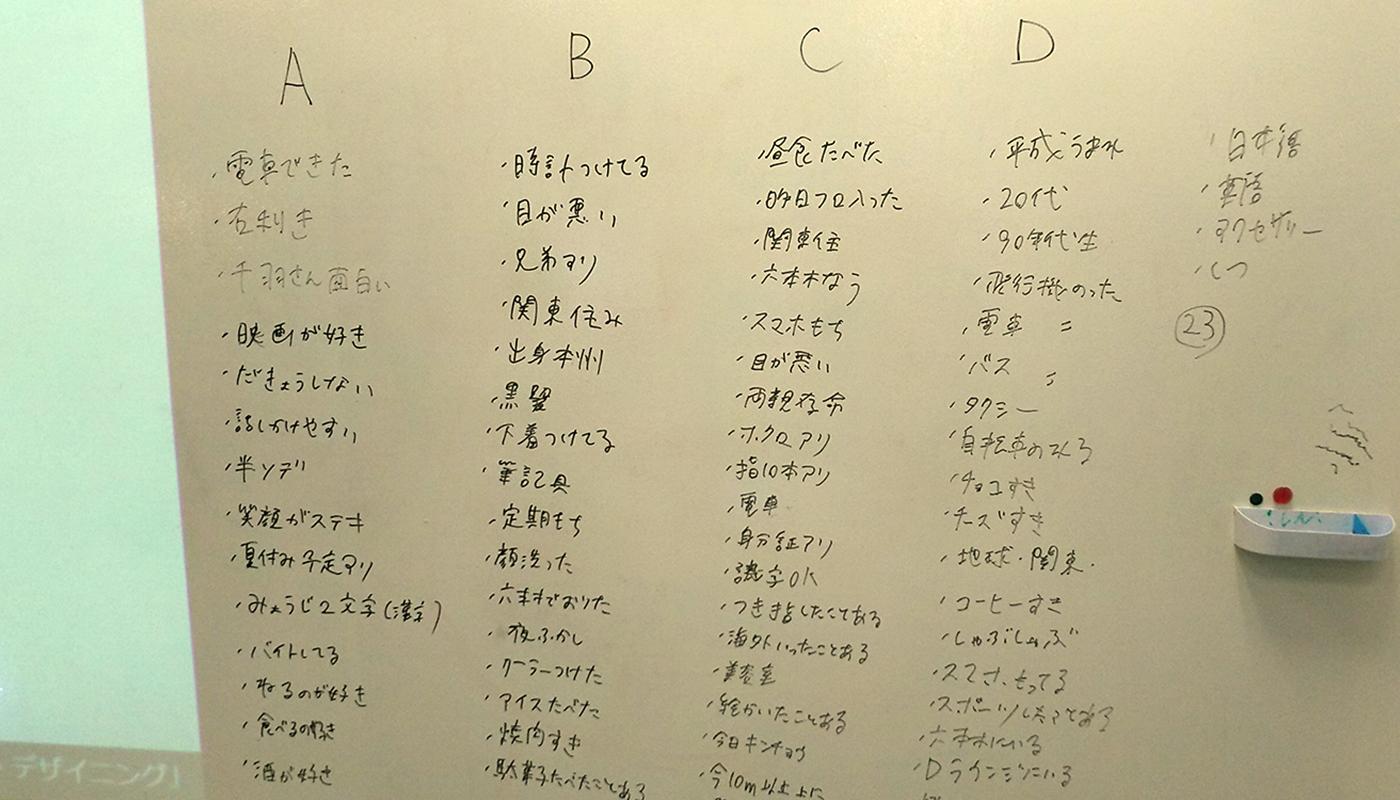 A
・電車できた
・右利き
・千羽さん面白い
・映画が好き
・だきょうしない
・話しかけやすい
・半ソデ
・笑顔がステキ
・夏休み予定アリ
・みょうじ2文字(漢字)
・バイトしてる
・ねるのが好き
・食べるの好き
・酒が好き
B
・時計つけてる
・目が悪い
・兄弟アリ
・関東住み
・出身本州
・黒髪
・下着つけてる
・筆記具
・定期もち
・顔洗った
・六本木でおりた
・夜ふかし
・クーラーつけた
・アイスたべた
・焼肉すき
・駄菓子たべたことある
C
・昼食たべた
・昨日フロ入った
・関東住
・六本木なう
・スマホもち
・目が悪い
・両親存命
・ホクロアリ
・指10本アリ
・電車
・身分証アリ
・識字OK
・つき指したことある
・海外いったことある
・美容室
・絵かいたことある
・今日キンチョウ
・今10m以上上に
D
・平成うまれ
・20代
・90年代生
・飛行機のった
・電車 〃
・バス 〃
・タクシー
・自転車のれる
・チョコすき
・チーズすき
・地球・関東・
・コーヒーすき
・しゃぶしゃぶ
・スマホもってる
・スポーツしたことある
・六本木にいる
・Dラウンジにいる
・日本語
・英語
・アクセサリー
・くつ
23
デザイニング!